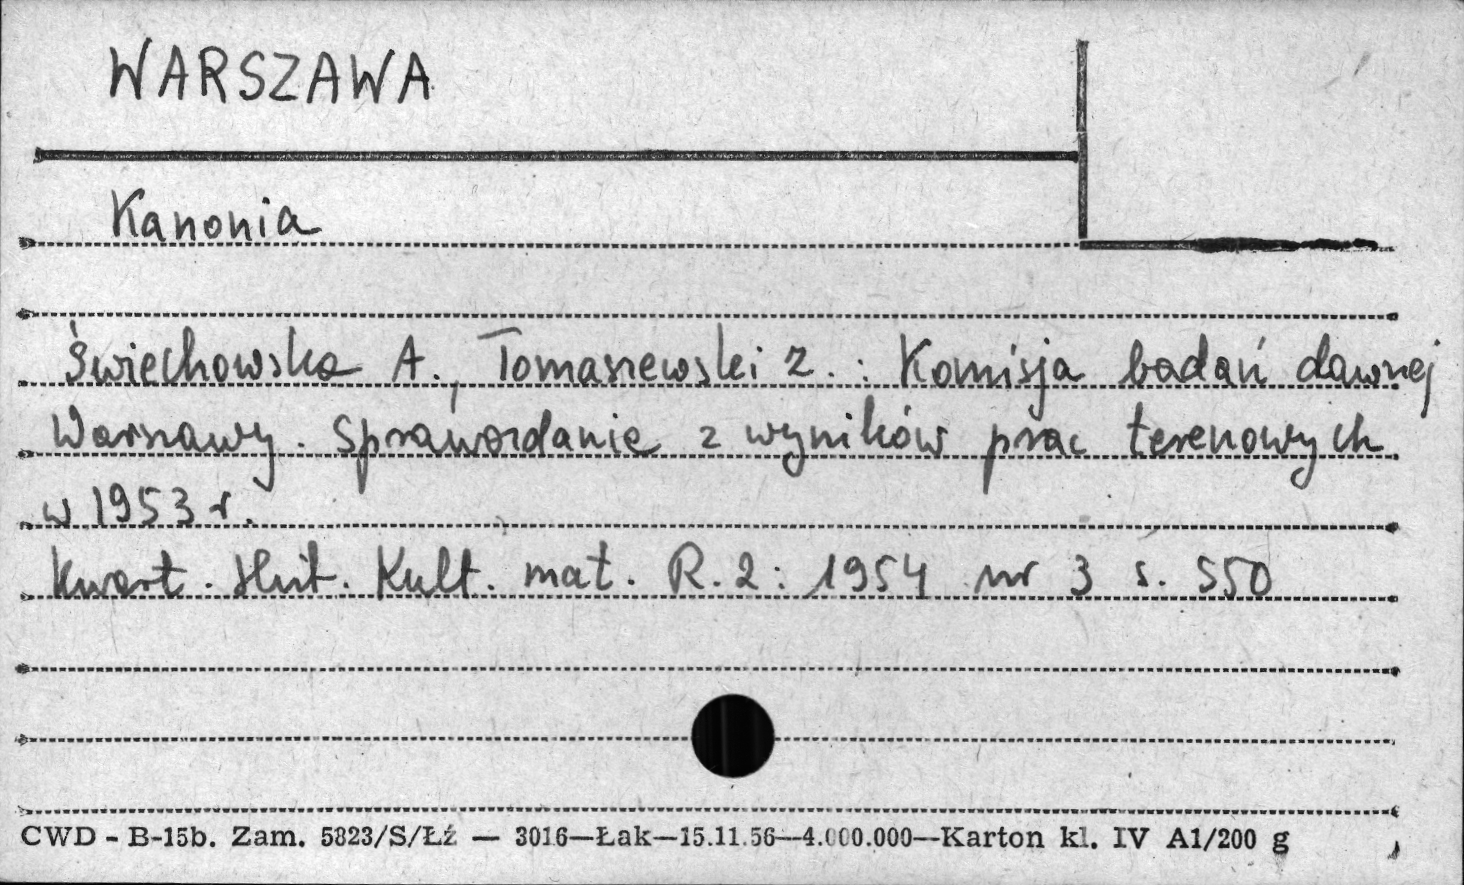 WARSZAWA
Kanonia
Świechowska A., Tomaszewski Z.: Komisja badań dawnej
Warszawy. Sprawozdanie z wyników prac terenowych
w 1953 r.
Kwart. Hist. Kult. mat. R.2: 1954 nr 3 s. 550
CWD - B-15b. Zam. 5823/S/Łź — 3016—Łak—15.11.56—4.000.000—Karton kl. IV A1/200 g